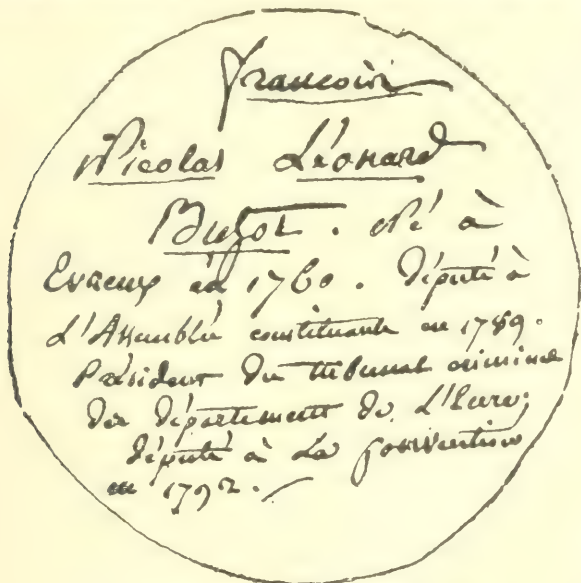 François
Nicolas Léonard
Buzot. Né à
Evreux en 1760. député à
L'Assemblée constituante en 1789.
Président du tribunal criminel
du département de L'Eure;
député à La Convention
en 1792.